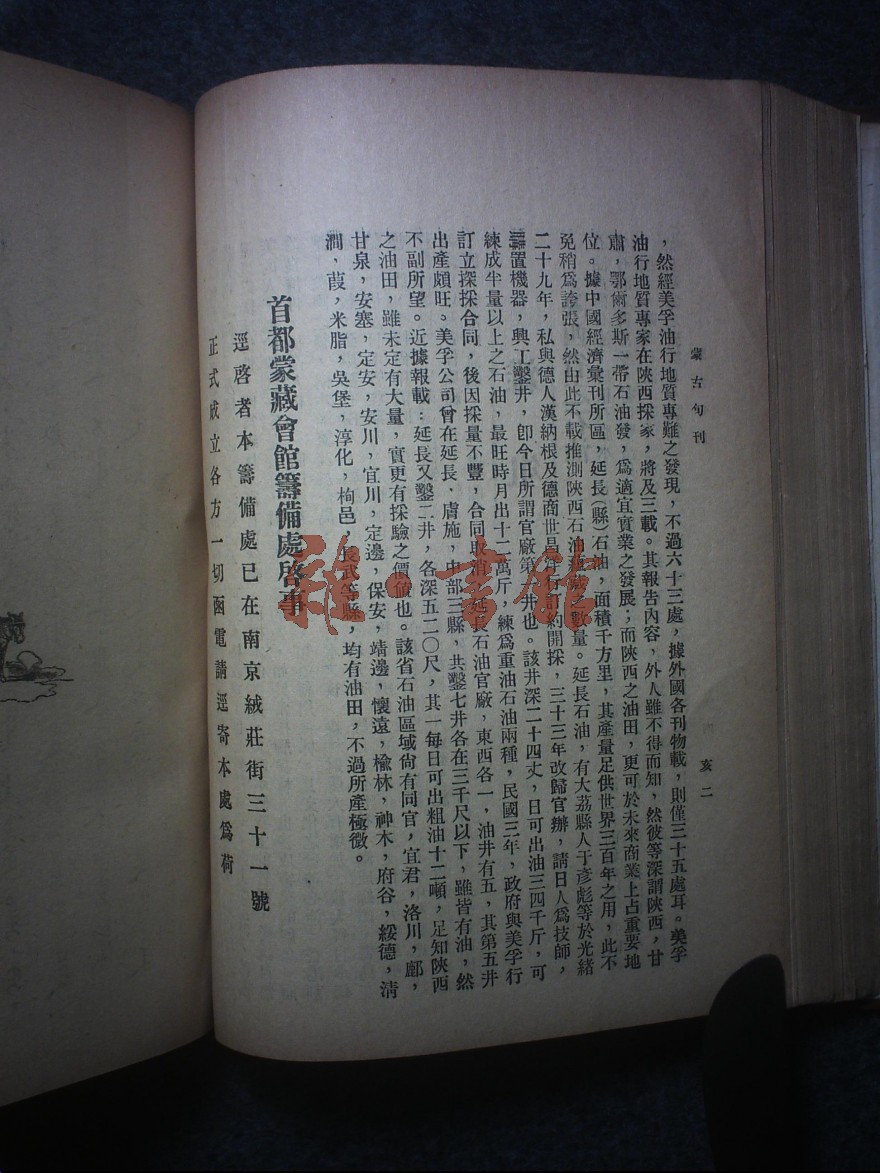 蒙古旬刊
亥二
，然經美孚油行地質專難之發現，不過六十三處，據外國各刊物載，則僅三十五處耳。美孚
油行地質專家在陝西採家，將及三載。其報告內容，外人雖不得而知，然彼等深謂陝西，甘
肅，鄂爾多斯一帶石油發，爲適宜實業之發展；而陝西之油田，更可於未來商業上占重要地
位。據中國經濟彙刊所區，延長（縣）石油，面積千方里，其產量足供世界三百年之用，此不
免稍爲誇張，然由此不載推測陝西石油 之數量。延長石油，有大荔縣人于彥彪等於光緒
二十九年，私與德人漢納根及德商世昌洋行訂約開採，三十三年改歸官辦，請日人爲技師，
購置機器，興工鑿井，卽今日所謂官廠第 井也。該井深二十四丈，日可出油三四千斤，可
練成半量以上之石油，最旺時月出十二萬斤 練爲重油石油兩種，民國三年，政府與美孚行
訂立探採合同，後因採量不豐，合同取消 延長石油官廠，東西各一，油井有五，其第五井
出產頗旺。美孚公司曾在延長、膚施，中部三縣，共鑿七井各在三千尺以下，雖皆有油，然
不副所望。近據報載：延長又鑿二井，各深五二〇尺，其一每日可出粗油十二噸，足知陝西
之油田，雖未定有大量，實更有採驗之價値也。該省石油區域尙有同官，宜君，洛川，鄜，
甘泉，安塞，定安，安川，宜川，定邊，保安，靖邊，懷遠，楡林，神木，府谷，綏德，淸
澗，葭，米脂，吳堡，淳化，栒邑，長武等縣，均有油田，不過所產極微。
首都蒙藏會館籌備處啓事
逕啓者本籌備處已在南京絨莊街三十一號
正式成立各方一切函電請逕寄本處爲荷
雜·書館